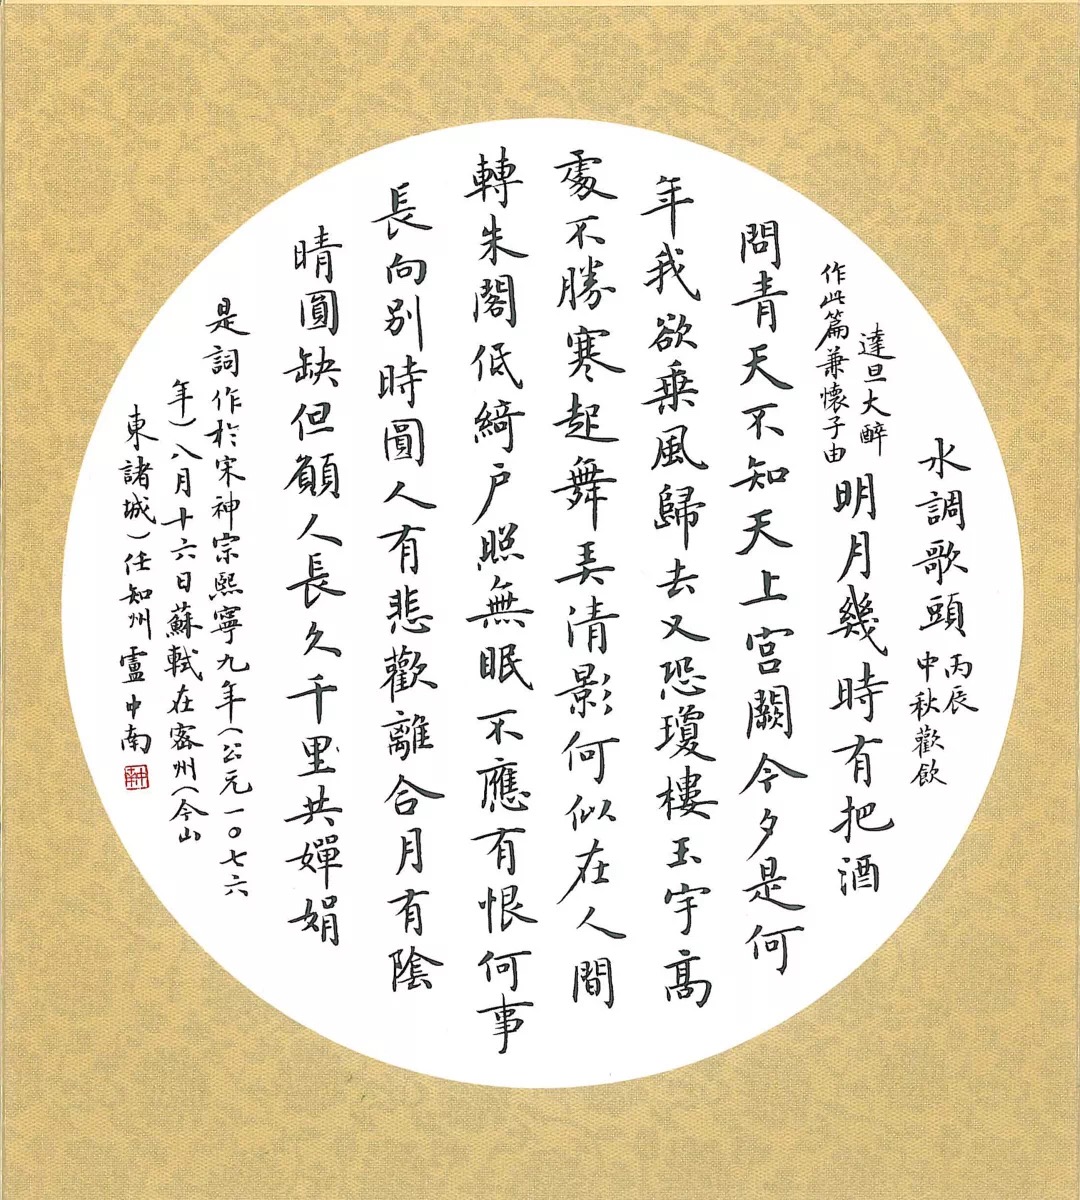 水調歌頭
丙辰
中秋歡飲
達旦大醉
作此篇兼懷子由
明月幾時有把酒
問青天不知天上宮闕今夕是何
年我欲乗風歸去又恐瓊樓玉宇高
處不勝寒起舞弄清影何似在人間
轉朱閣低綺戶照無眠不應有恨何事
長向別時圓人有悲歡離合月有陰
晴圓缺但願人長久千里共嬋娟
是詞作於宋神宗熙寧九年(公元一〇七六
年)八月十六日蘇軾在密州(今山
東諸城)任知州 盧中南